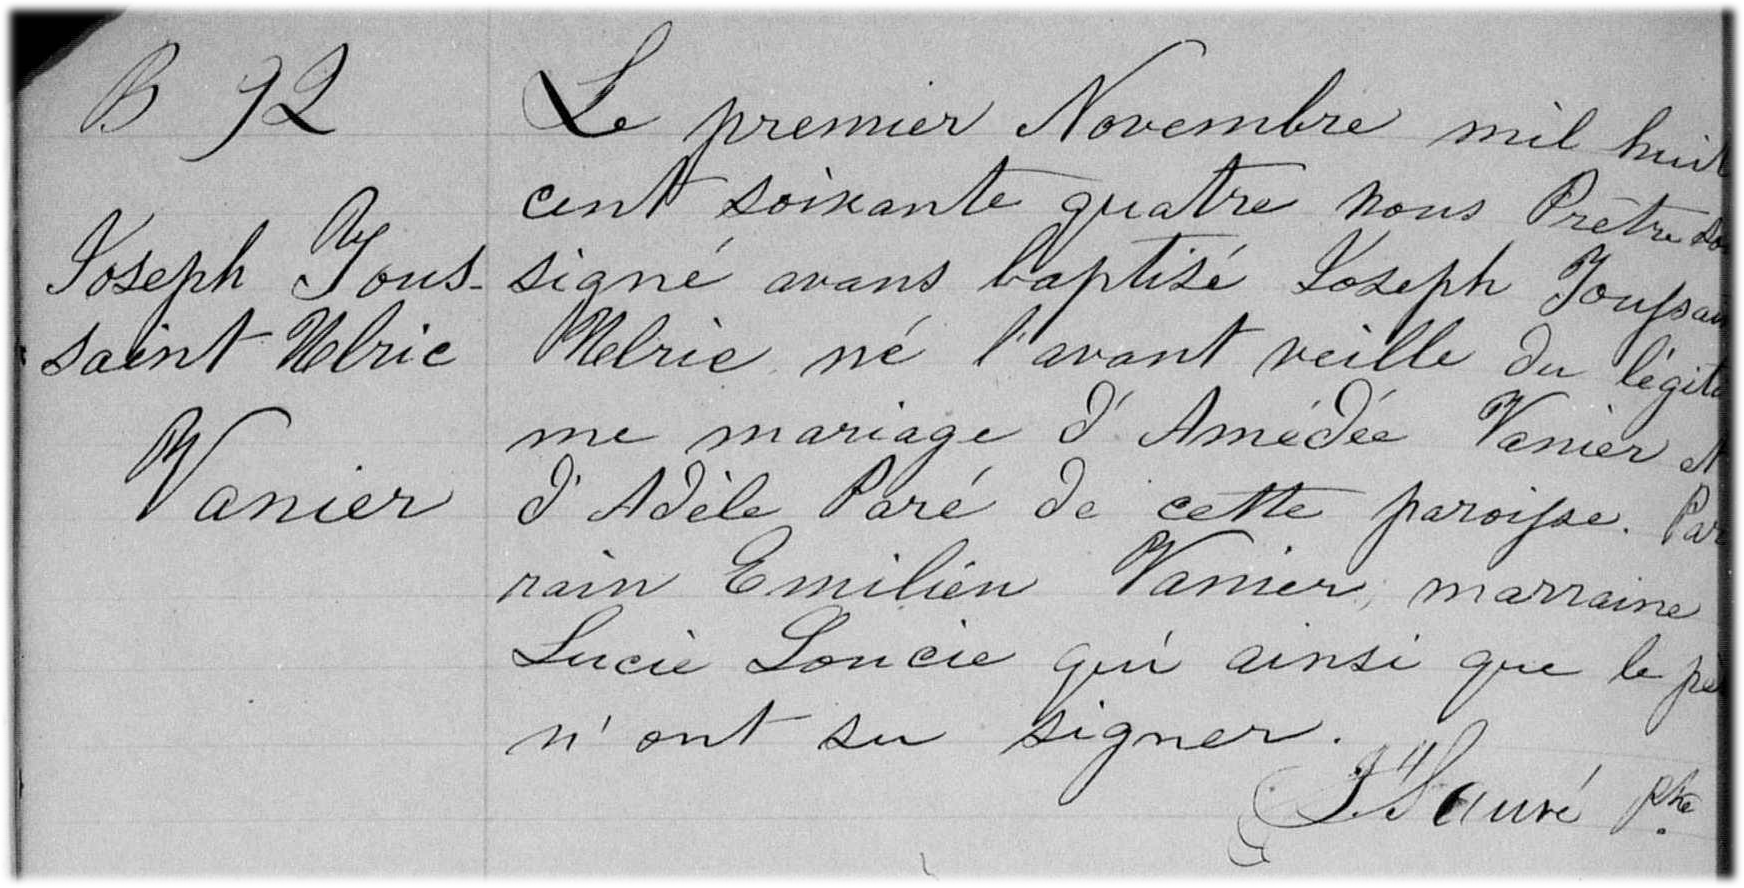 B 92
Joseph Tous-
saint Ulric
Vanier
Le premier Novembre mil huit
cent soixante quatre nous Prêtre sous
signé avons baptisé Joseph Toussaint
Ulric né l'avant veille du légiti
me mariage d'Amédée Vanier et
d'Adèle Paré de cette paroisse. Par
rain Emilien Vanier, marraine
Lucie Loucie qui ainsi que le père
n'ont su signer.
Sauvé Ptre